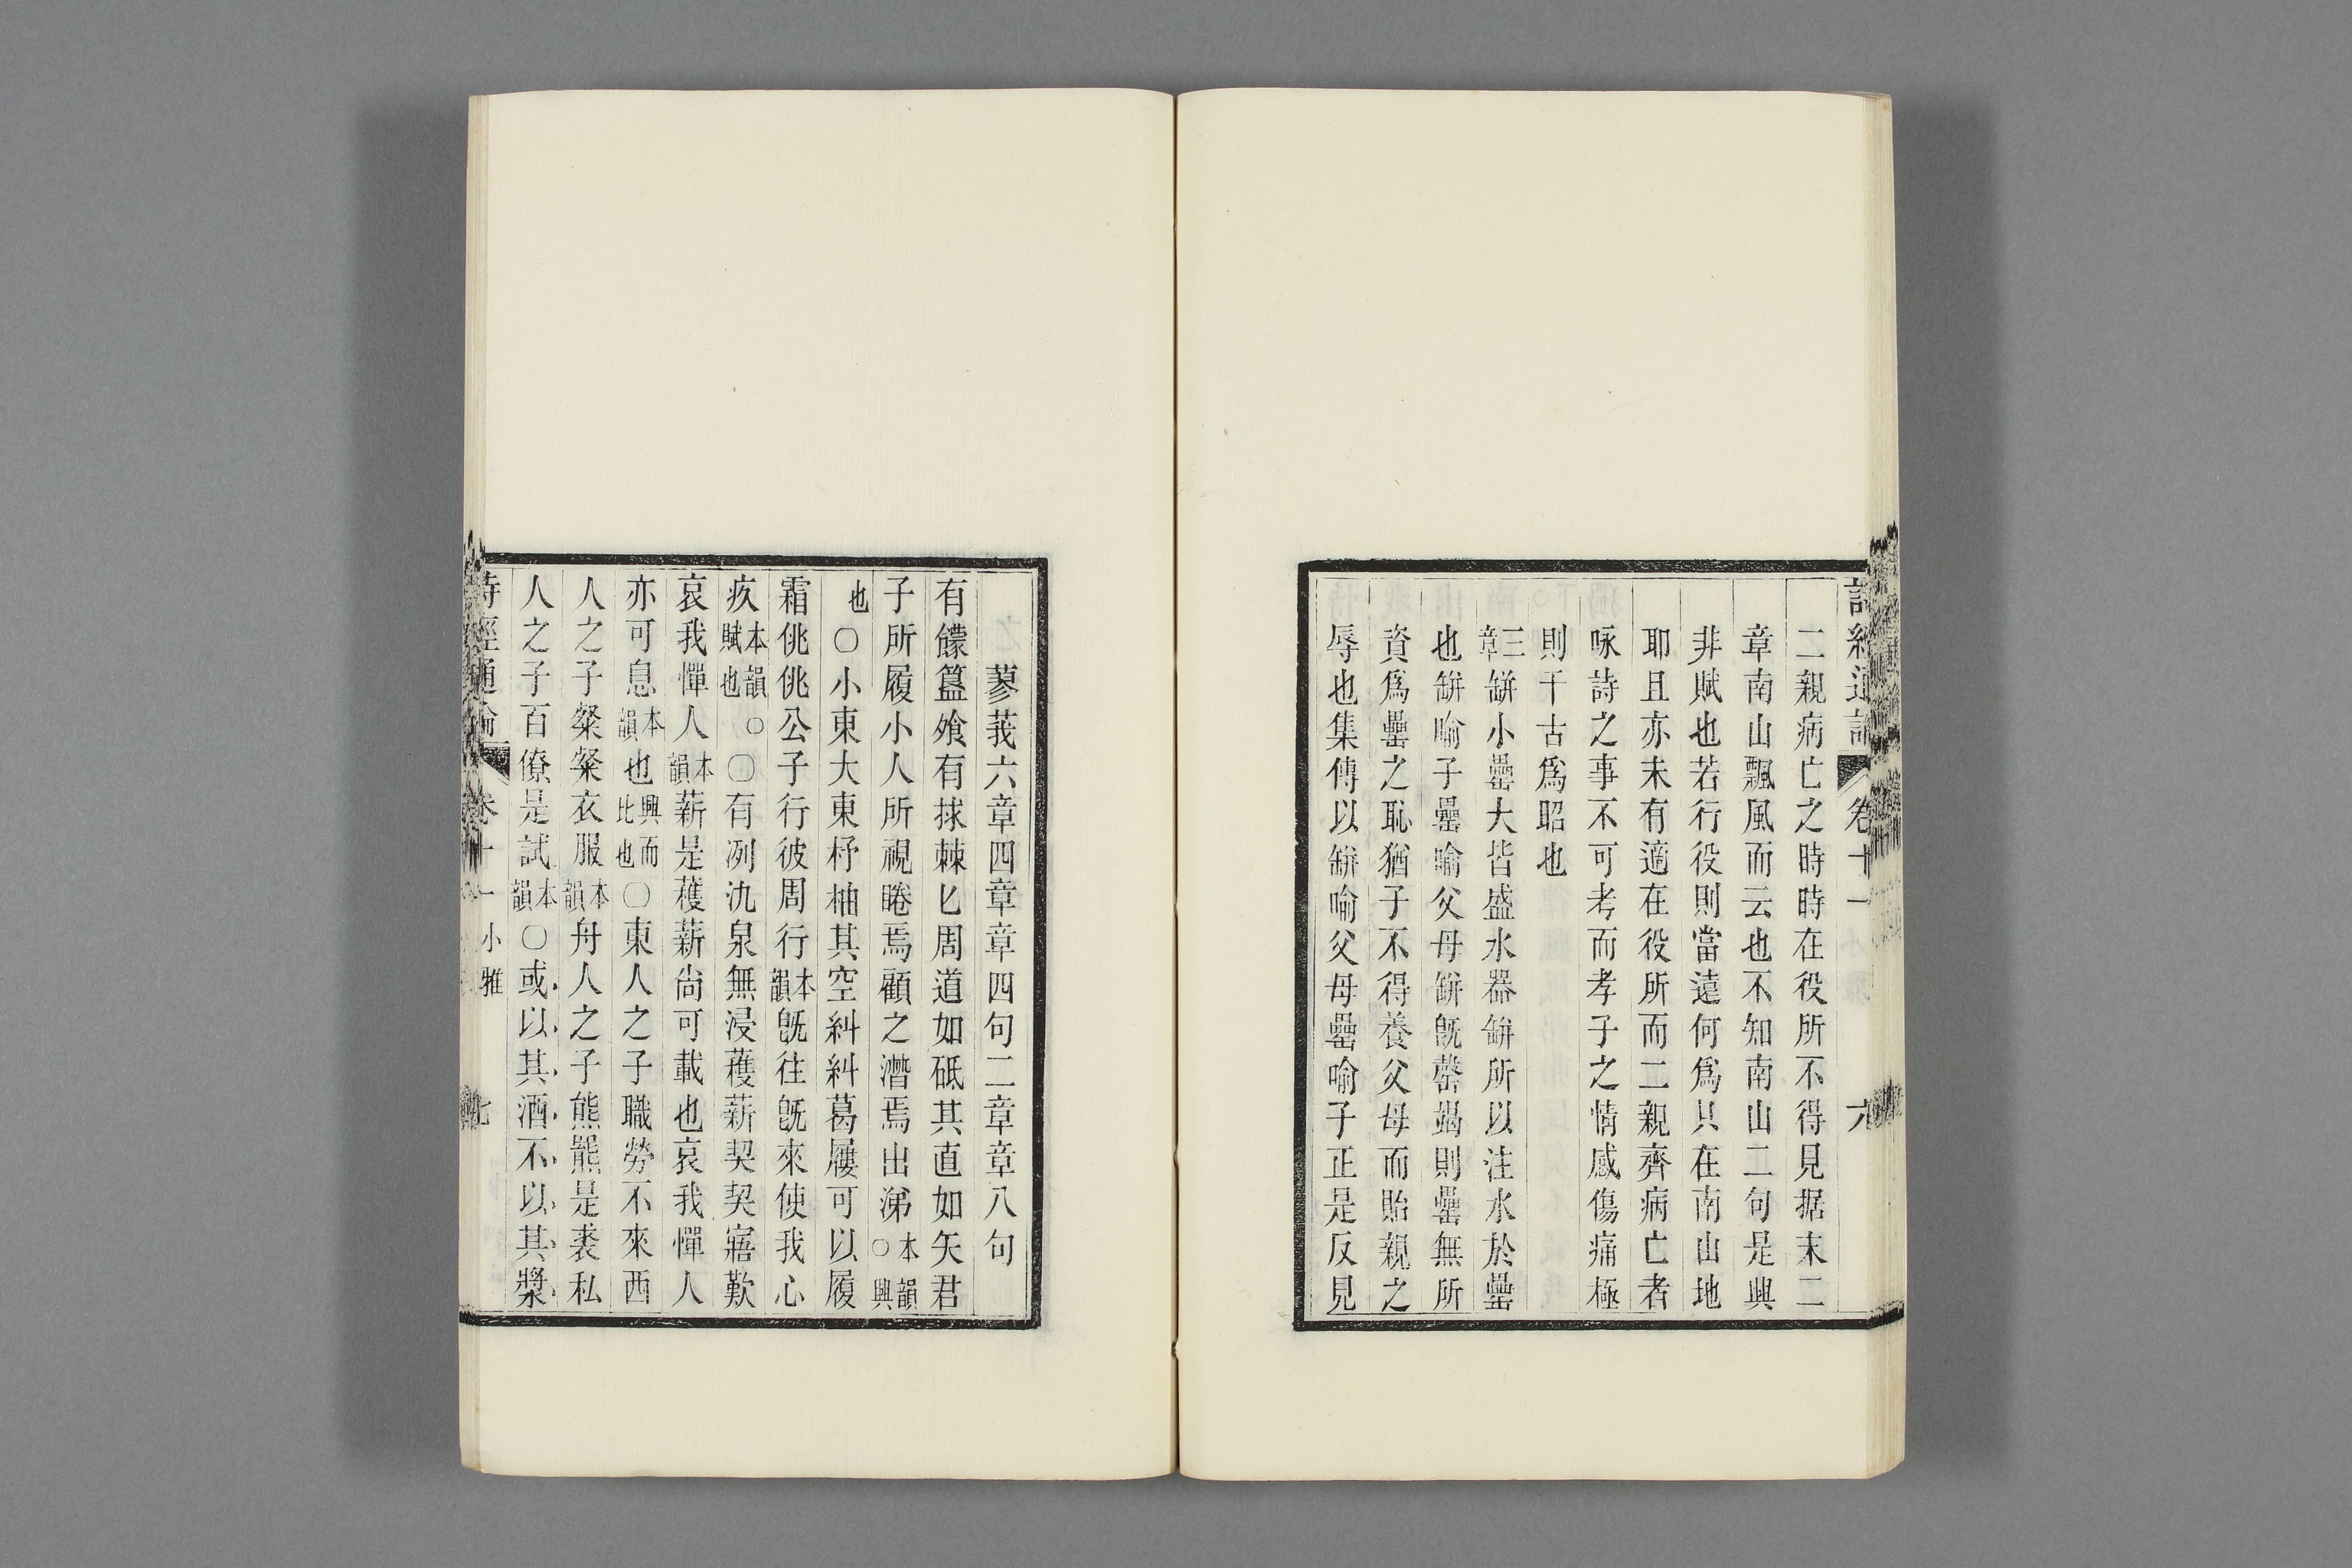 詩經通論 卷十一 六
二親病亡之時時在役所不得見据末二
章南山飄風而云也不知南山二句是興
非賦也若行役則當遠何爲只在南山地
耶且亦未有適在役所而二親齊病亡者
咏詩之事不可考而孝子之情感傷痛極
則千古爲昭也
三章缾小罍大皆盛水器缾所以注水於罍
也缾喻子罍喻父母缾旣罄竭則罍無所
資爲罍之恥猶子不得養父母而貽親之
辱也集傳以缾喻父母罍喻子正是反見
蓼莪六章四章章四句二章章八句
有饛簋飧有捄棘匕周道如砥其直如矢君
子所履小人所視睠焉顧之潸焉出涕本韻○興
也○小東大東杼柚其空糾糾葛屨可以履
霜佻佻公子行彼周行本韻旣往旣來使我心
疚本韻賦也○〇有冽氿泉無浸穫薪契契寤歎
哀我憚人本韻薪是穫薪尙可載也哀我憚人
亦可息本韻也興而比也〇東人之子職勞不來西
人之子粲粲衣服本韻舟人之子熊羆是裘私
人之子百僚是試本韻〇或以其酒不以其漿
詩經通論 卷十一 小雅 七